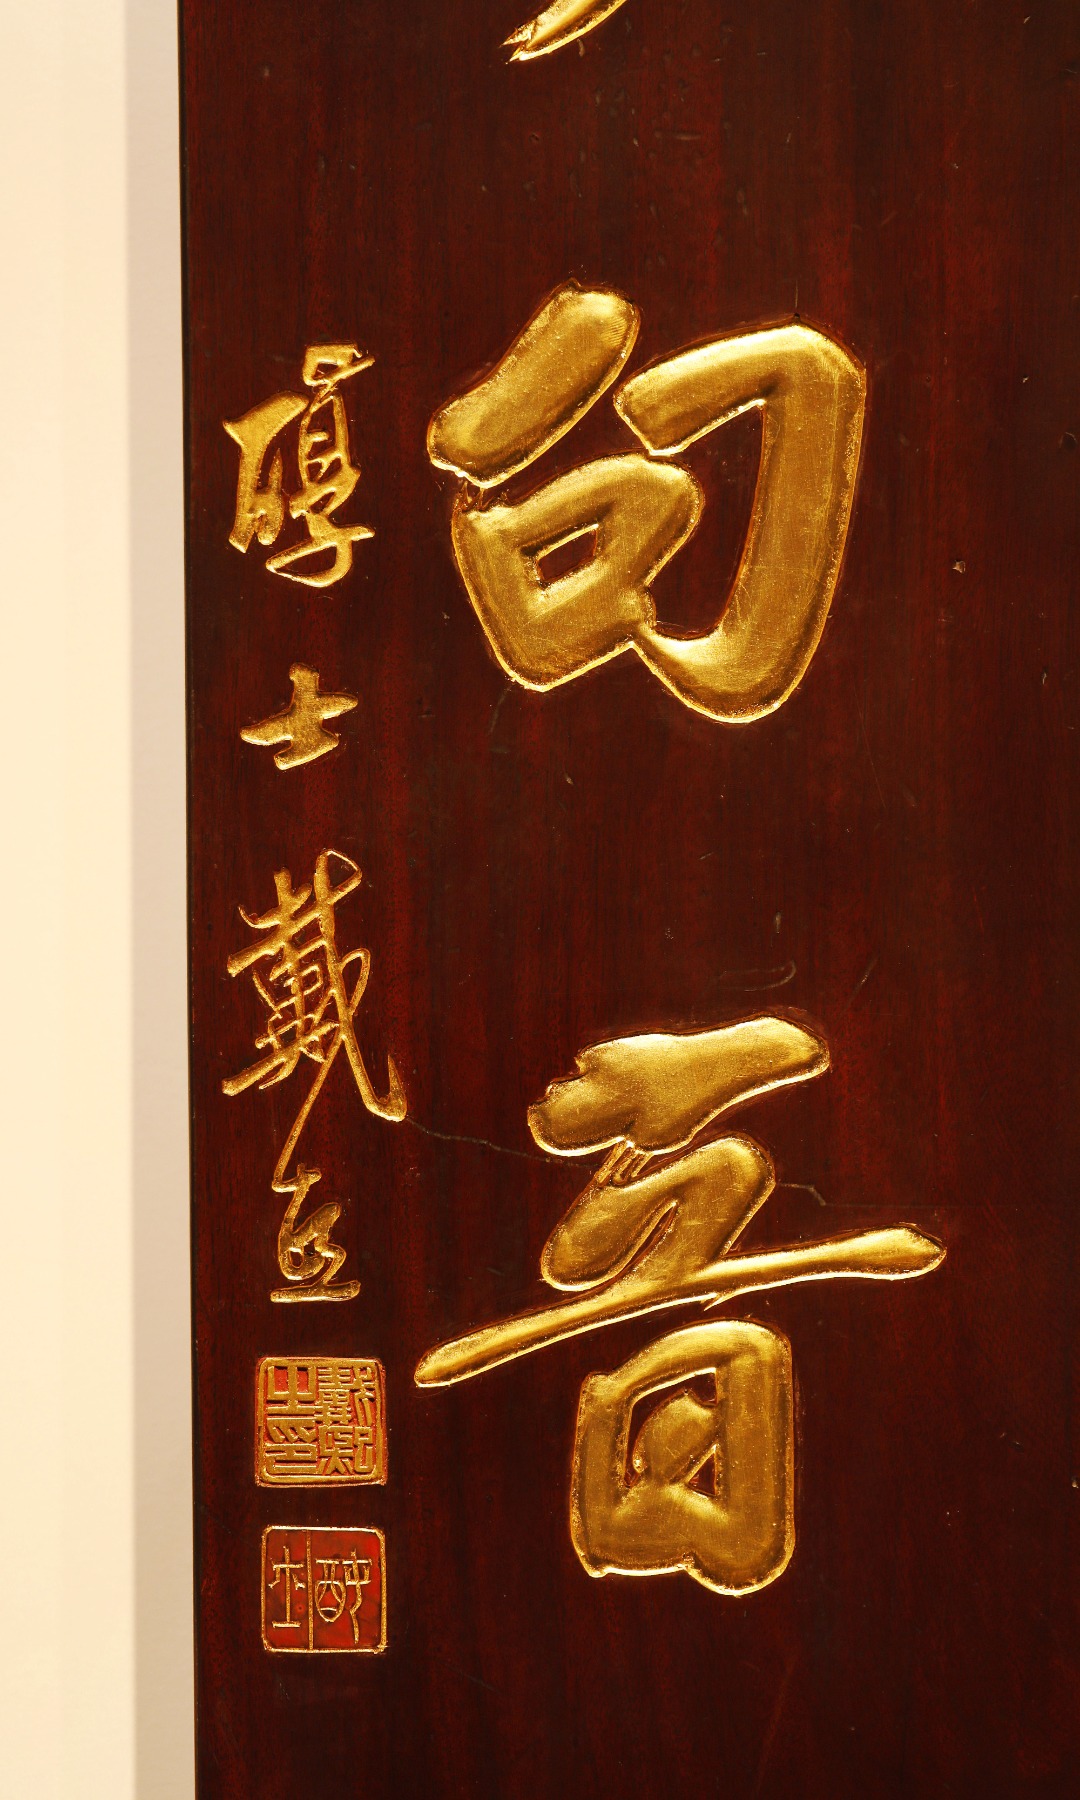 句音
醇士戴熙
戴熙之印
醇士